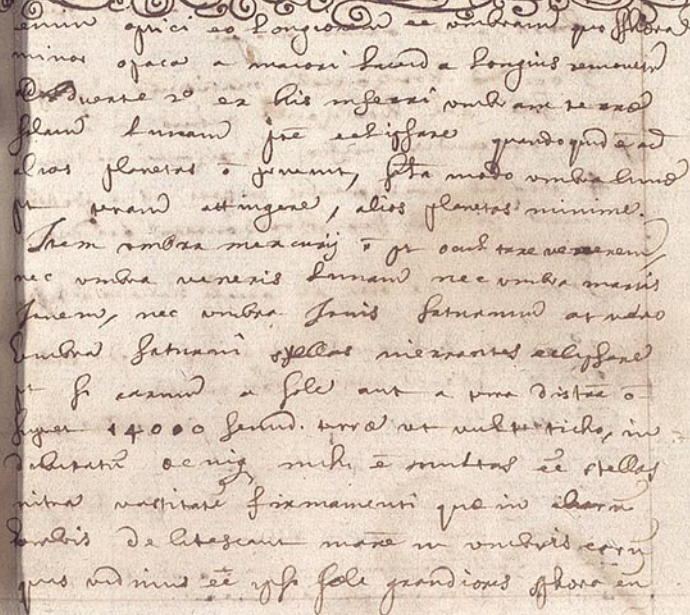 enim optici eo longiorem ee umbram quo sphæra
minor opaca a maiori lucida longius removetur
Adverte 2º ex his inferri umbram terræ
solam lunam pñt eclipsare quandoquidē ad
alios planetas õ pervenit, sola modo umbra lunæ
pt terram attingere, alios planetas minime.
Item umbra mercurij õ pt ocultare venerem,
nec umbra veneris lunam nec umbra martis
Jovem, nec umbra Jovis saturnum at vero
umbra saturni stellas inerrantes eclipsare
pt si earum a sole aut a terra distã õ
14000 semid. terræ ut vult ticho, in
mihi ē multas ēē stellas
intra vastitatē firmamenti que in
orbis delitescant in umbris earū
quas vidimus ēē ipso sole grandiores